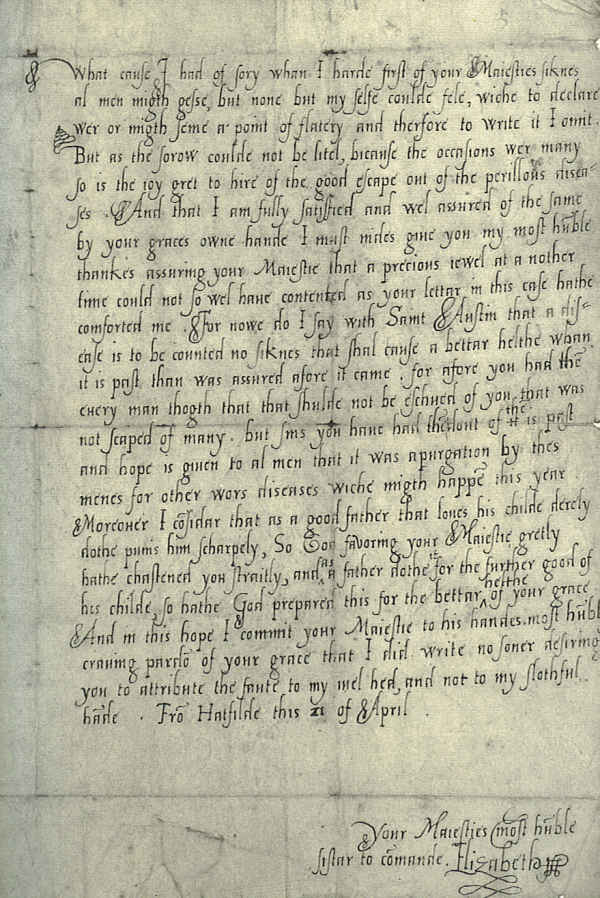 What cause I had of sory whan I harde first of your Maiesties siknes
al men migth gesse, but none but my selfe coulde fele, wiche to declare
wer or migth seme a point of flatery and therfore to write it I omit.
But as the sorow coulde not be litel, bicause the occasions wer many
so is the ioy gret to hire of the good escape out of the perillous disea-
ses. And that I am fully satisfied and wel assured of the same
by your graces owne hande I must nides giue you my most hūble
thankes assuring your Maiestie that a precious iewel at a nother
time could not so wel haue contented as your lettar in this case hathe
comforted me. For nowe do I say with Saint Austin that a dis-
ease is to be counted no siknes that shal cause a bettar helthe whan
it is past than was assured afore it came. for afore you had thē
euery man thogth that that shulde not be eschued of you that was
not scaped of many. but sins you haue had them dout of thē is past
and hope is giuen to al men that it was a purgation by thes
menes for other wors diseases wiche migth happē this year.
Moreouer I cōsidar that as a good father that loues his childe derely
dothe punis him scharpely, So God fauoring your Maiestie gretly
hathe chastened you straitly, and as a father dothe it for the further good of
his childe, so hathe God prepared this for the bettar helthe of your grace
And in this hope I commit your Maiestie to his handes. most hūbly
crauing pardō of your grace that I did write no soner desiring
you to attribute the faute to my iuel hed, and not to my slothful
hāde. Frō Hatfilde this 21 of April.
Your Maiesties most hūble
sistar to cōmande. Elizabeth